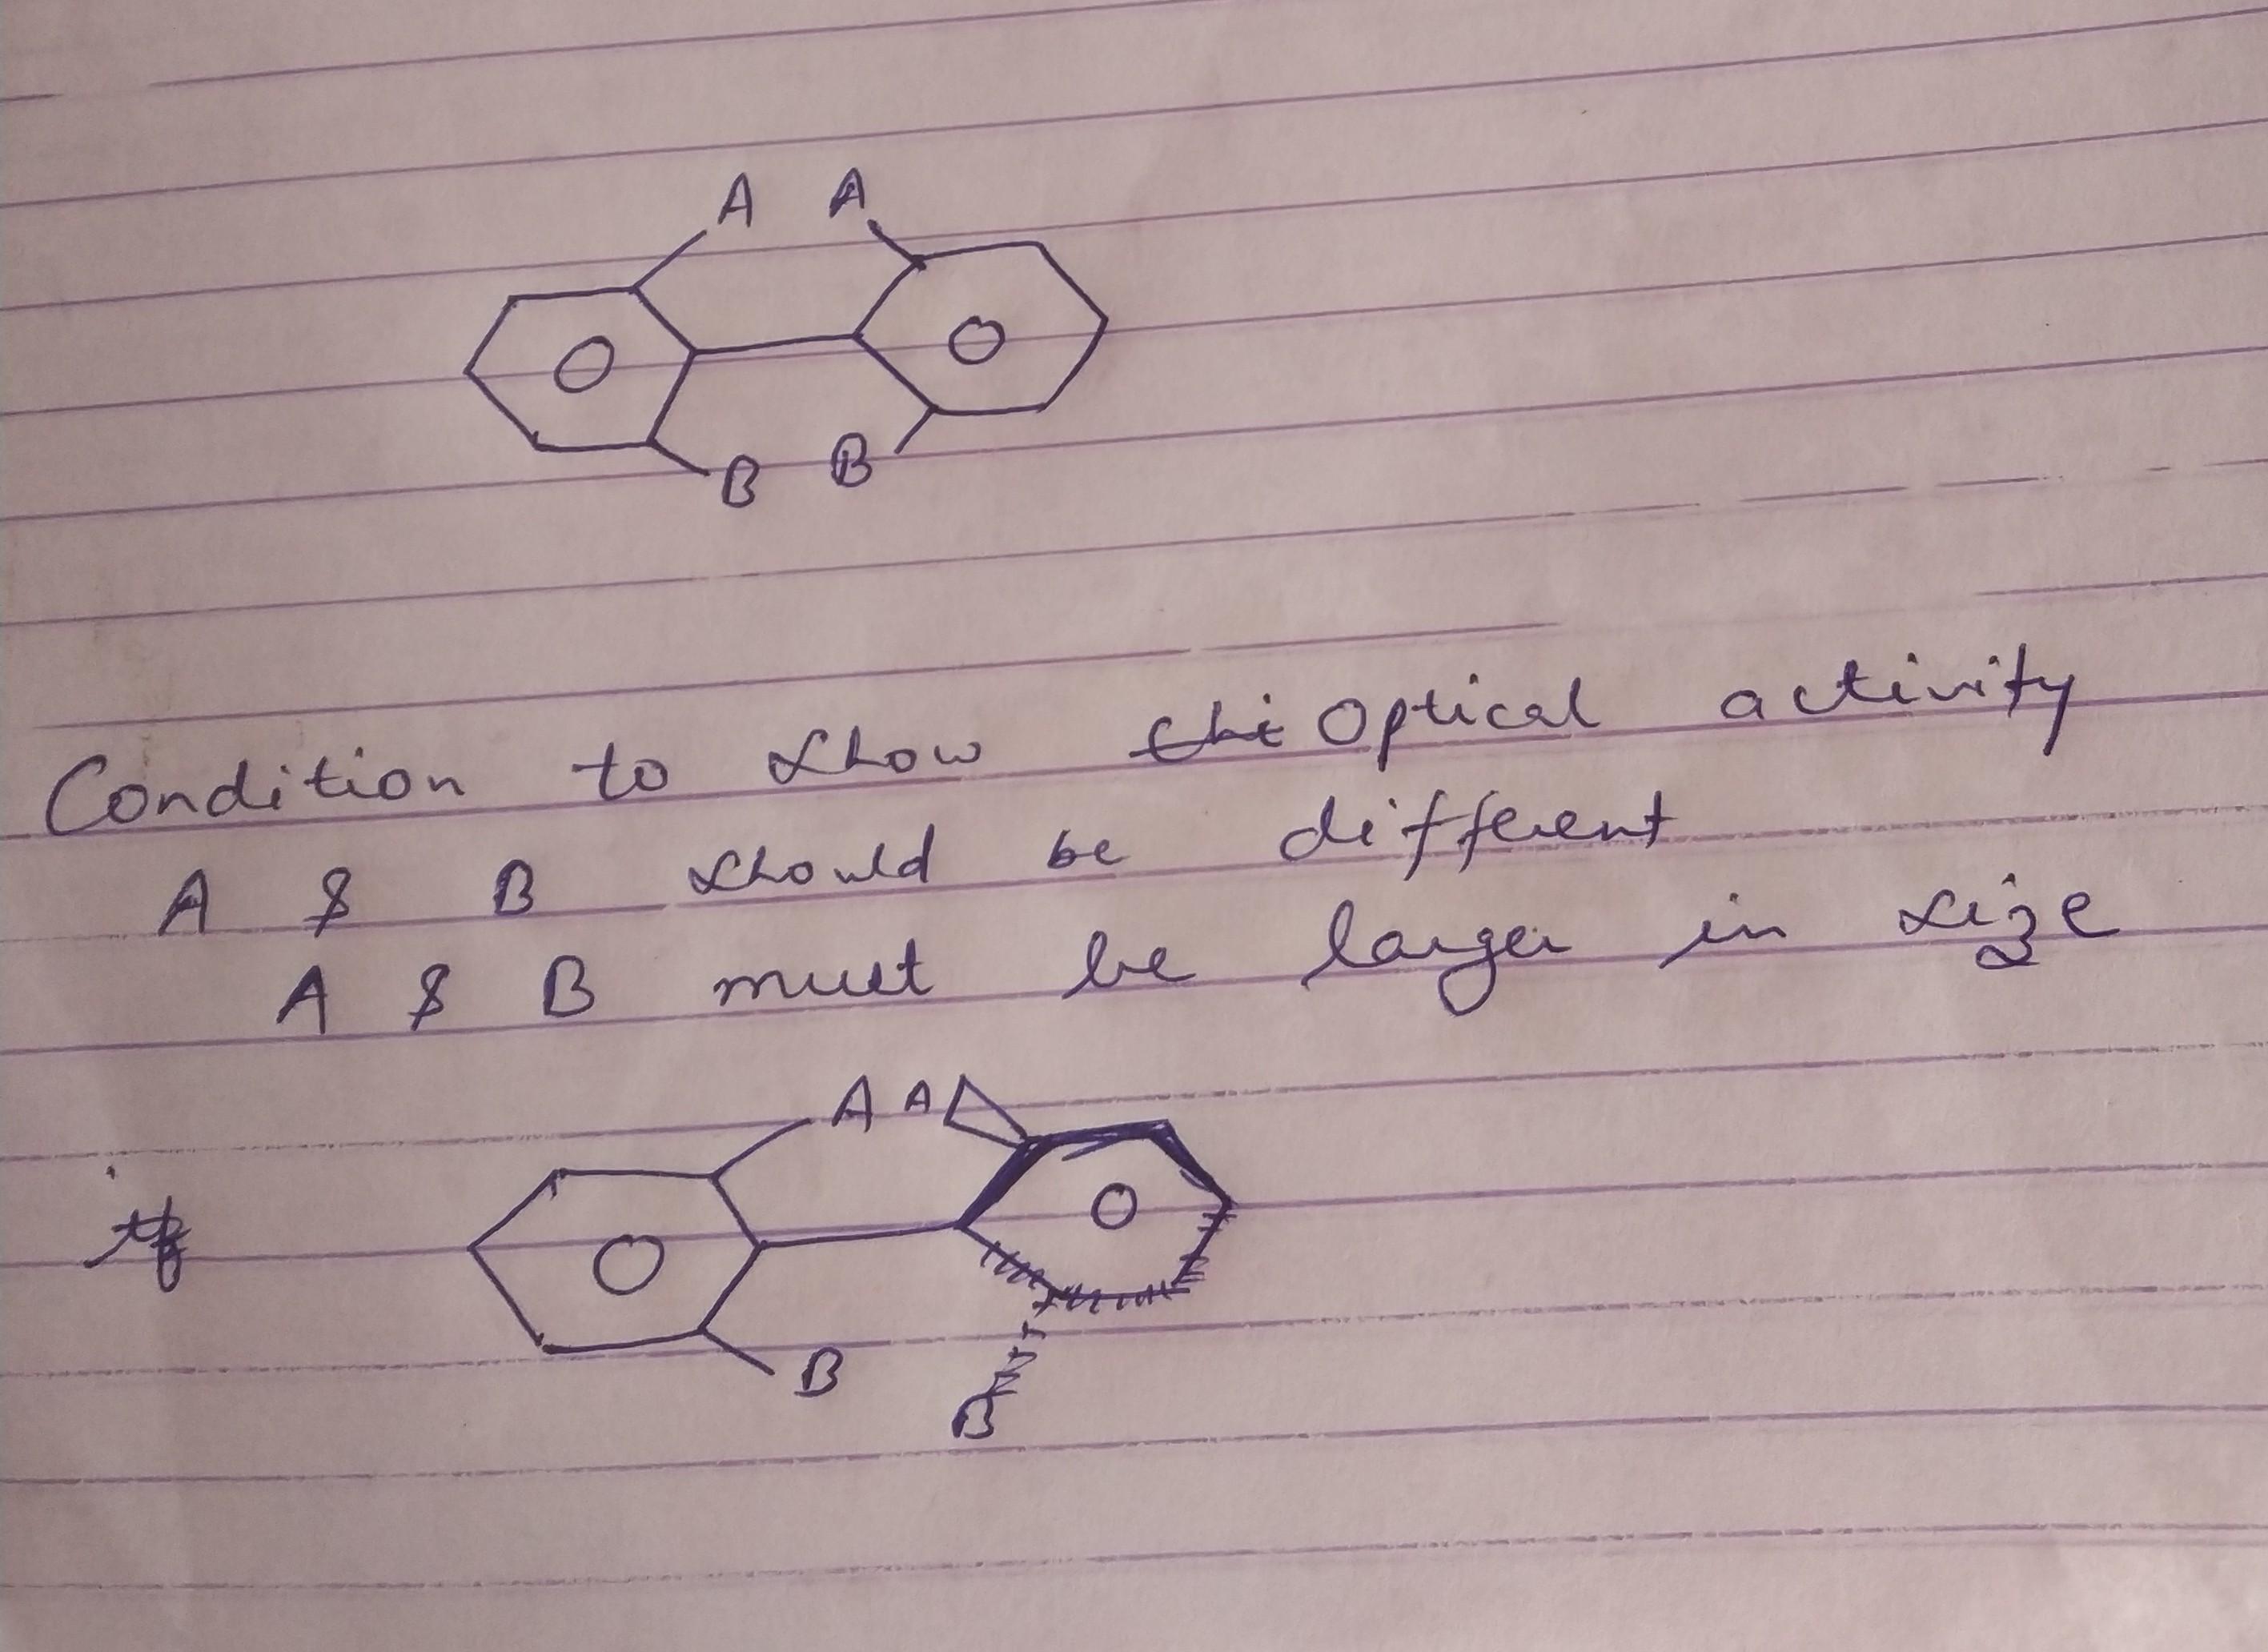 A A
B B
Condition to show chi Optical activity
A & B should be different
A & B must be larger in size
A A
if
B
B